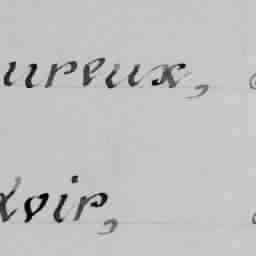 ureux,
voir,